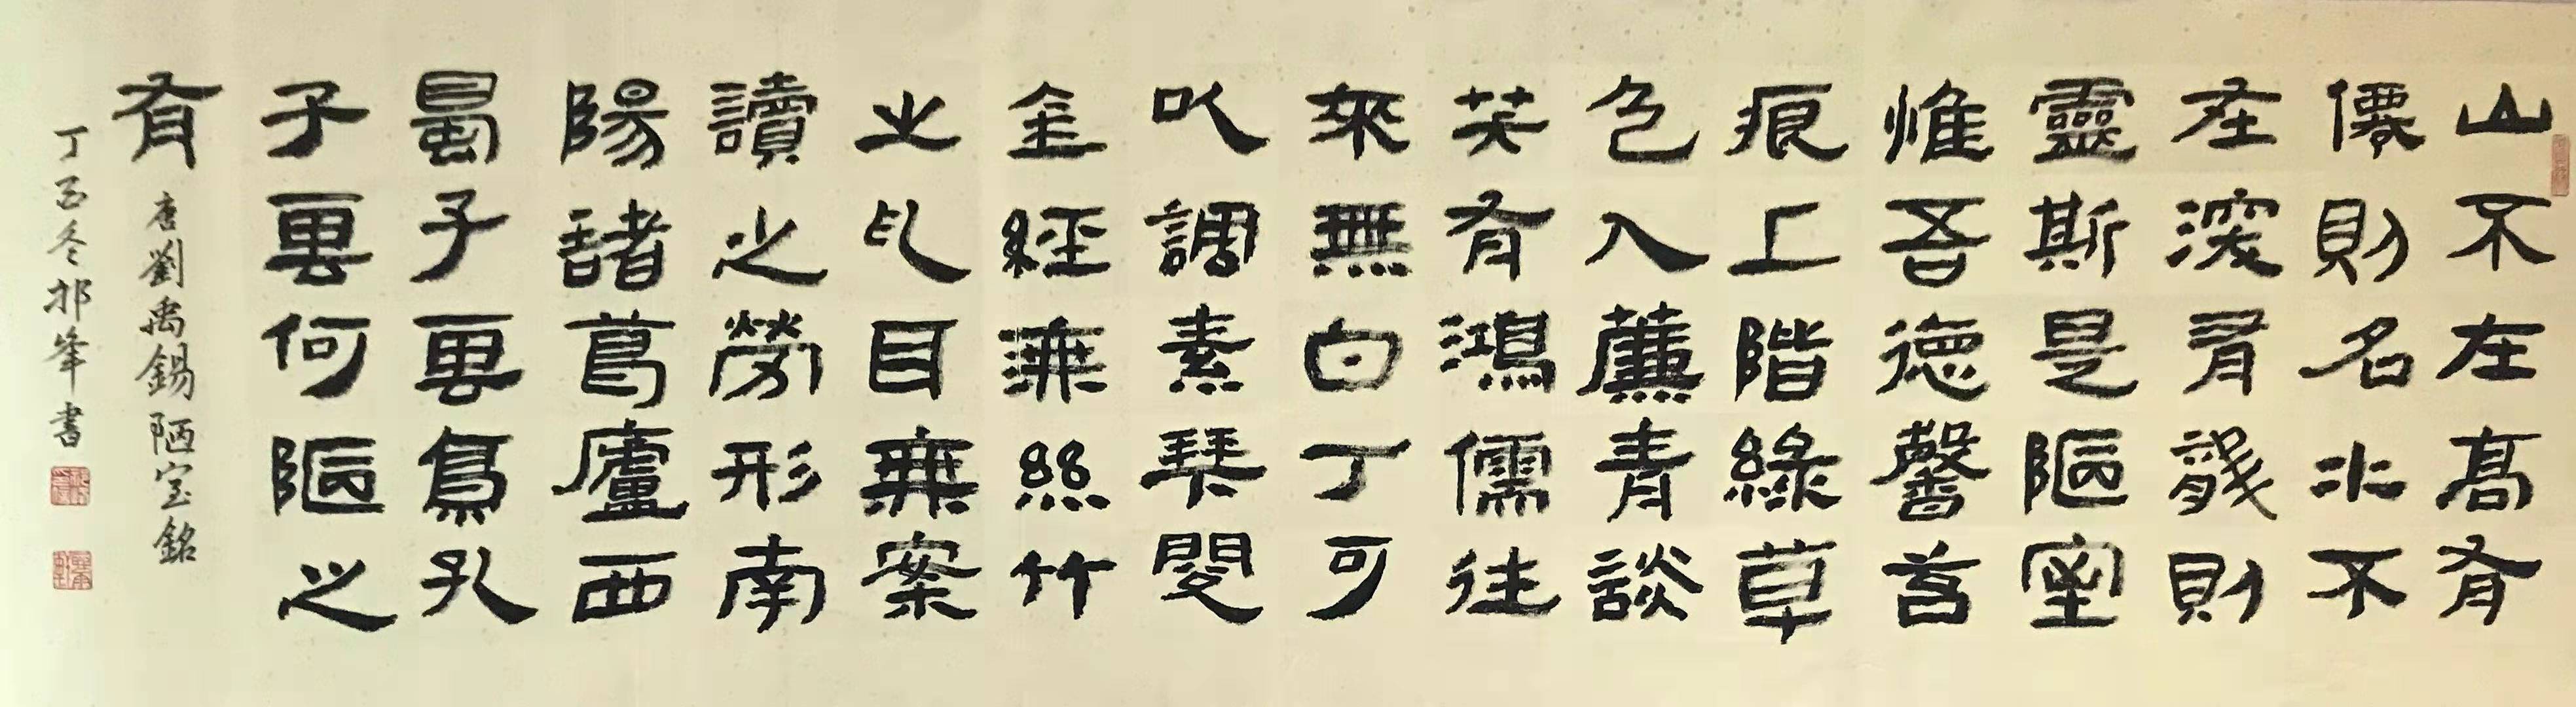 山不在高有
僊則名水不
在深有龍則
靈斯是陋室
惟吾德馨苔
痕上階綠草
色入薕青談
笑有鴻儒往
來無白丁可
以調素琴閱
金經無絲竹
之乱目無案
讀之勞形南
陽諸葛廬西
蜀子雲亭孔
子雲何陋之
有
唐劉禹錫陋室銘
丁酉冬祁峰書